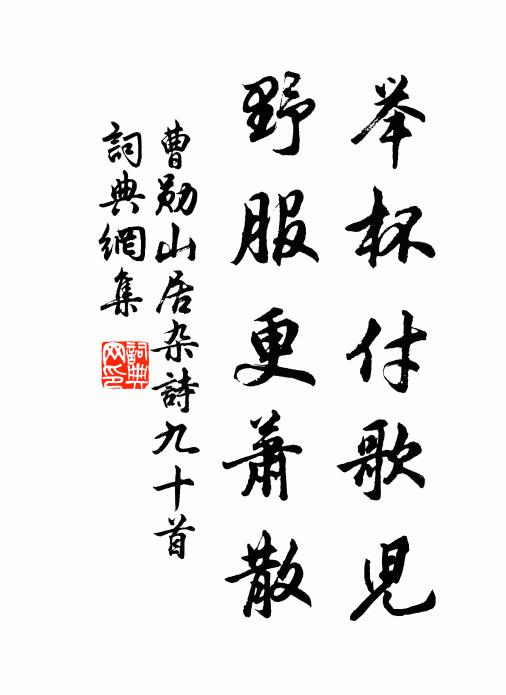 举杯付歌児
野服更蕭散
曹勛山居杂詩九十首
詞典網集
詞典網印